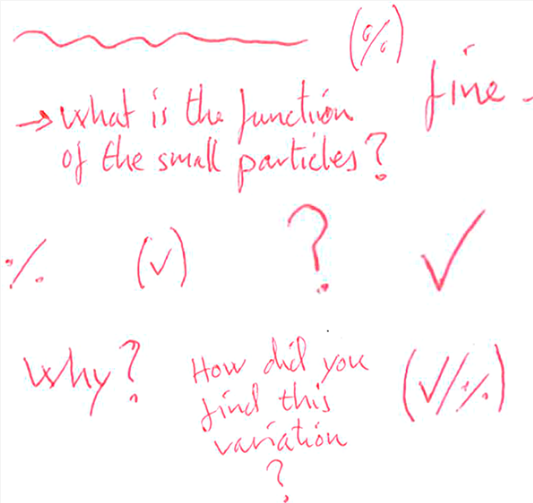 (%)
fine -
→ What is the function
of the small particles?
% (✓) ? ✓
Why?
How did you
find this
variation
?
(✓/%)